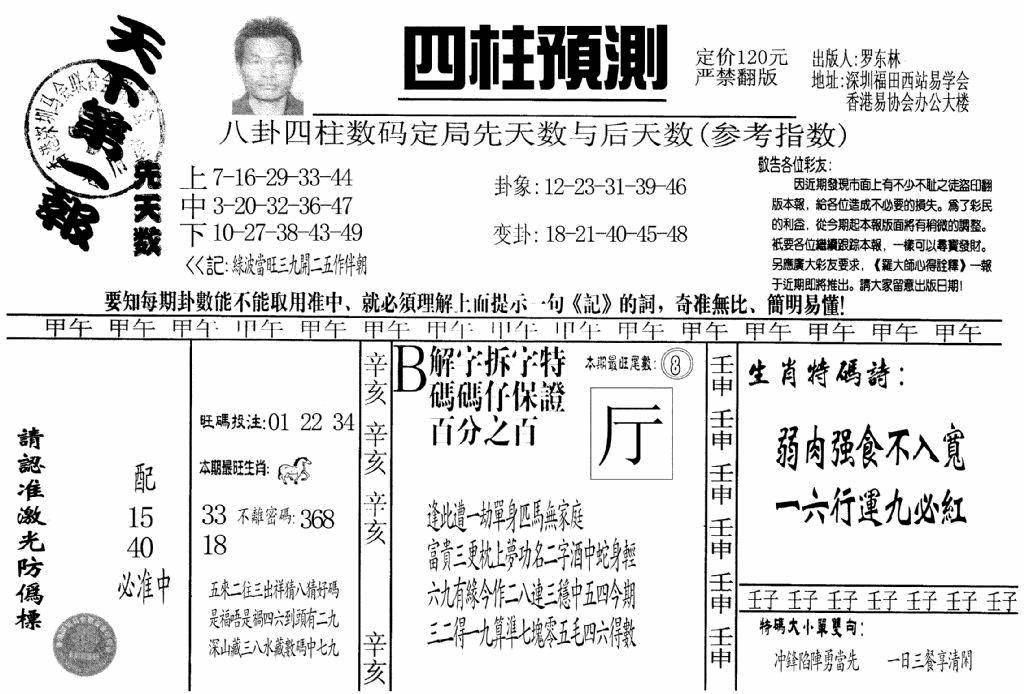 天下第一報
先天数
四柱預測
定价120元
严禁翻版
出版人:罗东林
地址:深圳福田西站易学会
香港易协会办公大楼
八卦四柱数码定局先天数与后天数(参考指数)
上 7-16-29-33-44
中 3-20-32-36-47
下 10-27-38-43-49
<<記: 綠波當旺三九開二五作伴朝
卦象: 12-23-31-39-46
变卦: 18-21-40-45-48
敬告各位彩友:
因近期發現市面上有不少不耻之徒盜印翻
版本報,給各位造成不必要的損失。為了彩民
的利益,從今期起本報版面將有稍微的調整。
衹要各位繼續跟踪本報,一樣可以尋寶發財。
另應廣大彩友要求,《羅大師心得詮釋》一報
于近期即將推出。請大家留意出版日期!
要知每期卦數能不能取用准中、就必須理解上面提示一句《記》的詞,奇准無比、簡明易懂!
甲午 甲午 甲午 甲午 甲午 甲午 甲午 甲午 甲午 甲午 甲午 甲午 甲午 甲午 甲午
請認准激光防僞標
配
15
40
必准中
旺碼投注:01 22 34
本期最旺生肖:
33 不離密碼: 368
18
五來二往三出祥猜八猜好碼
是福唔是禍四六到頭有二九
深山藏三八水藏數碼中七九
辛亥 辛亥 辛亥 辛亥
B 解字拆字特
碼碼仔保證
百分之百
本期最旺尾數: 8
厅
逢此遭一劫單身匹馬無家庭
富貴三更枕上夢功名二字酒中蛇身輕
六九有緣今作二八連三穩中五四今期
三二得一九算準七塊零五毛四六得數
壬申 壬申 壬申 壬申 壬申 壬申
生肖特碼詩:
弱肉强食不入寬
一六行運九必紅
壬子 壬子 壬子 壬子 壬子 壬子 壬子
特碼大小單雙句:
冲鋒陷陣勇當先 一日三餐享清閑